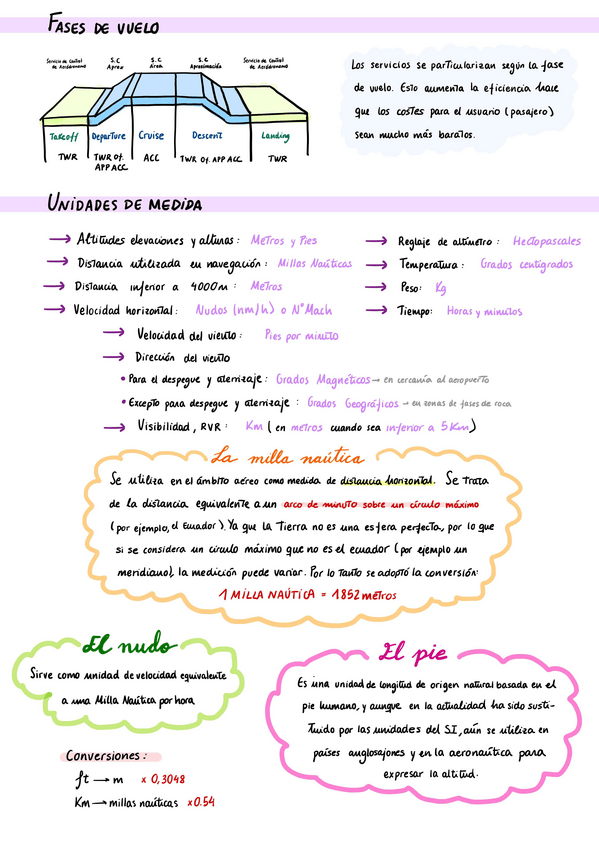 FASES DE VUELO
Servicio de Control de Aeródromo
S.C Aprox
S.C Área
S.C Aproximación
Servicio de Control de Aeródromo
Takeoff Departure Cruise Descent Landing
TWR TWR Of. APP ACC ACC TWR Of. APP ACC TWR
Los servicios se particularizan según la fase
de vuelo. Esto aumenta la eficiencia hace
que los costes para el usuario (pasajero)
sean mucho más baratos.
UNIDADES DE MEDIDA
→ Altitudes elevaciones y alturas: Metros y Pies
→ Distancia utilizada en navegación: Millas Naúticas
→ Distancia inferior a 4000m: Metros
→ Velocidad horizontal: Nudos (nm/h) o NºMach
→ Reglaje de altímetro: Hectopascales
→ Temperatura: Grados centígrados
→ Peso: Kg
→ Tiempo: Horas y minutos
→ Velocidad del viento: Pies por minuto
→ Dirección del viento
• Para el despegue y aterrizaje: Grados Magnéticos → en cercanía al aeropuerto
• Excepto para despegue y aterrizaje: Grados Geográficos → en zonas de fases de roca
→ Visibilidad, RVR: Km (en metros cuando sea inferior a 5Km)
La milla naútica
Se utiliza en el ámbito aéreo como medida de distancia horizontal. Se trata
de la distancia equivalente a un arco de minuto sobre un círculo máximo
(por ejemplo, el Ecuador). Ya que la Tierra no es una esfera perfecta, por lo que
si se considera un círculo máximo que no es el ecuador (por ejemplo un
meridiano), la medición puede variar. Por lo tanto se adoptó la conversión:
1 MILLA NAÚTICA = 1852 metros
El nudo
Sirve como unidad de velocidad equivalente
a una Milla Naútica por hora
El pie
Es una unidad de longitud de origen natural basada en el
pie humano, y aunque en la actualidad ha sido susti-
tuido por las unidades del S.I, aún se utiliza en
países anglosajones y en la aeronaútica para
expresar la altitud.
Conversiones:
ft → m x 0,3048
Km → millas naúticas x0.54